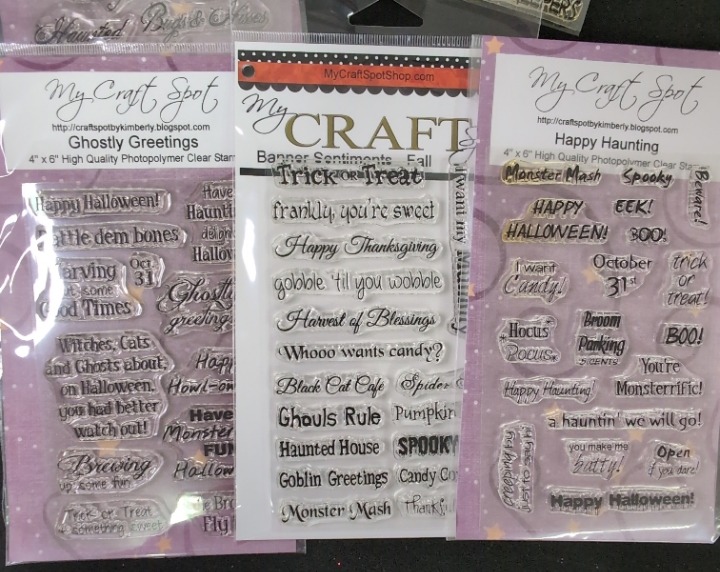 Haunted Bugs & Hisses
My Craft Spot
http://craftspotbykimberly.blogspot.com
Ghostly Greetings
4" x 6" High Quality Photopolymer Clear Stam
Happy Halloween!
Rattle dem bones
Carving
out some
Good Times
Oct
31
Have
Haunti
Hallow
Ghostly
greetings
Witches, Cats
and Ghosts about,
on Halloween,
you had better
watch out!
Happy
Howl-on
Have
Monster
FUN
Hallow
Brewing
up some fun
Trick or Treat
something sweet
Fly
MyCraftSpotShop.com
My
CRAFT
Banner Sentiments Fall
Trick or Treat
frankly, you're sweet
Happy Thanksgiving
gobble 'til you wobble
Harvest of Blessings
Whooo wants candy?
Black Cat Cafe
Spider
Ghouls Rule
Pumpkin
Haunted House
SPOOKY
Goblin Greetings
Candy Co
Monster Mash
Thankfu
I want my
My Craft Spot
http://craftspotbykimberly.blogspot.com
Happy Haunting
4" x 6" High Quality Photopolymer Clear Stam
Monster Mash
Spooky
Beware!
HAPPY
HALLOWEEN!
EEK!
BOO!
I want
Candy!
October
31st
trick
or
treat!
Hocus
Pocus
Broom
Parking
5 CENTS!
BOO!
You're
Monsterrific!
Happy Haunting!
a hauntin' we will go!
you make me
batty!
Open
if you dare!
Happy Halloween!